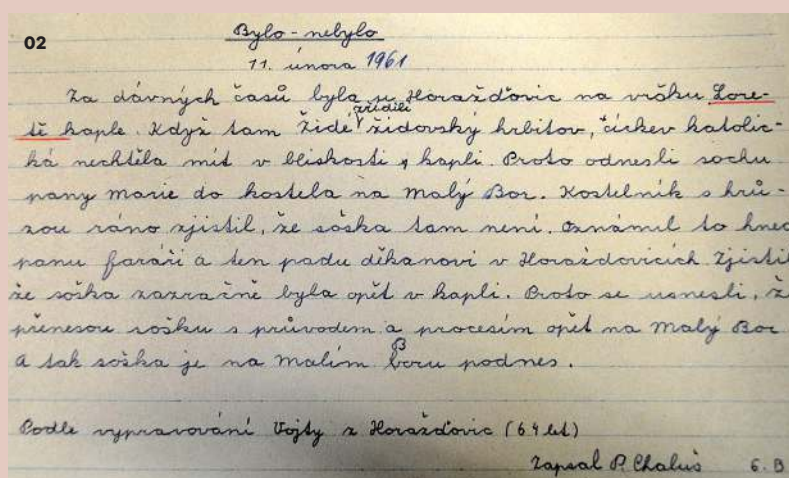 02
Bylo - nebylo
11. února 1961
Za dávných časů byla u Horažďovic na vršku Lore-
tě kaple. Když tam Židé zřídili židovský hrbitov, církev katolic-
ká nechtěla mít v bliskosti kapli. Proto odnesli sochu
pany marie do kostela na Malý Bor. Kostelník s hrů-
zou ráno zjistil, že soška tam není. Oznámil to hned
panu faráři a ten padu děkanovi v Horaždovicích Zjistil
že soška zazračně byla opět v kapli. Proto se usnesli, ž
přenesou sošku s průvodem a procesím opět na Malý Bor
a tak soška je na Malím Boru podnes.
Podle vypravování Vojty z Horažďovic (64 let)
Zapsal P. Chaluš 6. B